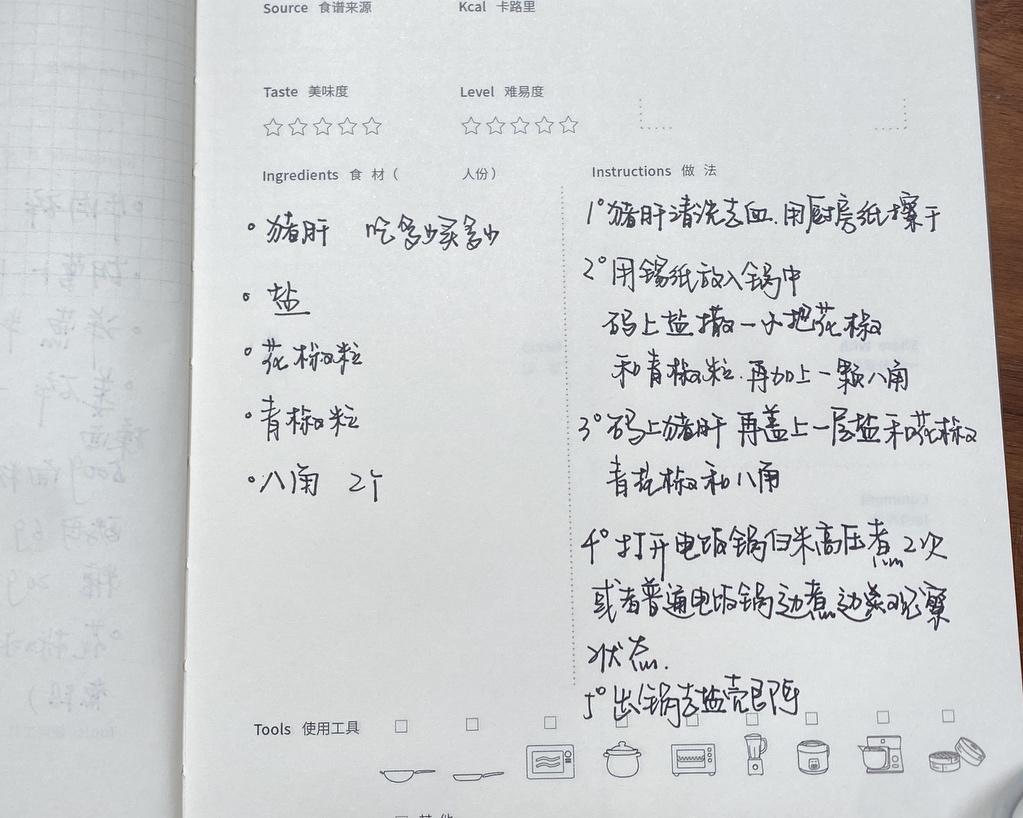 Source 食谱来源
Kcal 卡路里
Taste 美味度
Level 难易度
Ingredients 食 材（ 人份）
• 猪肝 吃多少买多少
• 盐
• 花椒粒
• 青椒粒
• 八角 2个
Instructions 做 法
1° 猪肝清洗去血.用厨房纸擦干
2° 用锡纸放入锅中
码上盐撒一小把花椒
和青椒粒.再加上一颗八角
3° 码上猪肝 再盖上一层盐和花椒
青花椒和八角
4° 打开电饭锅白米高压煮2次
或者普通电饭锅边煮边观察
状态.
5° 出锅去盐壳即可
Tools 使用工具